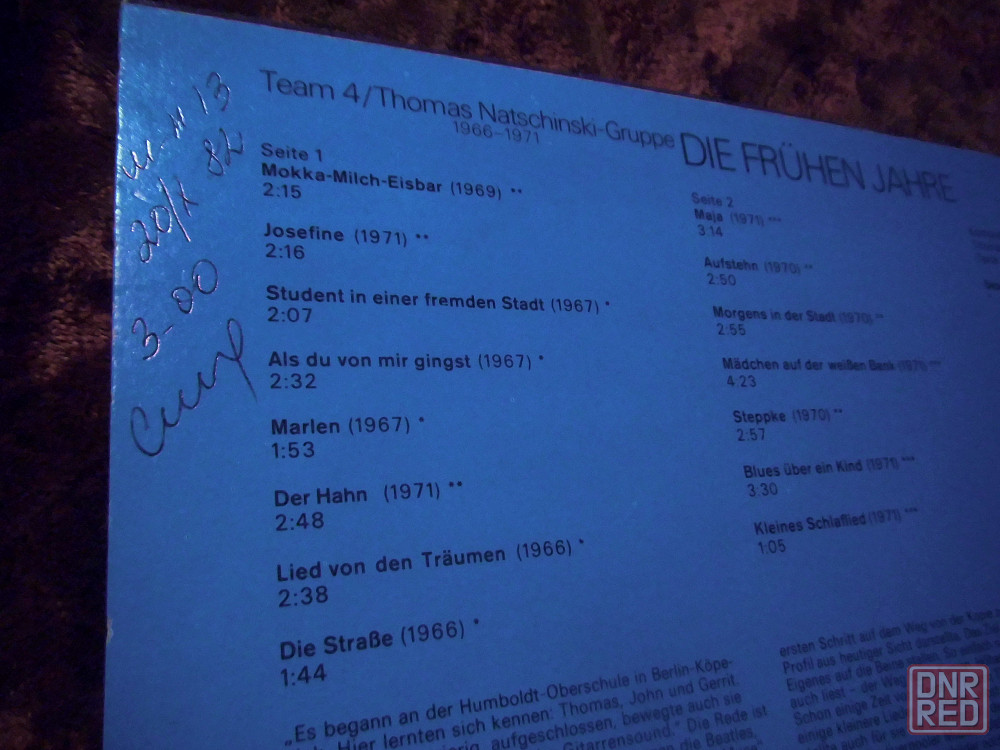 Team 4/Thomas Natschinski-Gruppe
1966–1971
DIE FRÜHEN JAHRE
13
20/X 82
3-00
Seite 1
Mokka-Milch-Eisbar (1969) **
2:15
Josefine (1971) **
2:16
Student in einer fremden Stadt (1967) *
2:07
Als du von mir gingst (1967) *
2:32
Marlen (1967) *
1:53
Der Hahn (1971) **
2:48
Lied von den Träumen (1966) *
2:38
Die Straße (1966) *
1:44
Seite 2
Maja (1971) ***
3:14
Aufstehn (1970) **
2:50
Morgens in der Stadt (1970) **
2:55
Mädchen auf der weißen Bank (1971) ***
4:23
Steppke (1970) **
2:57
Blues über ein Kind (1971) ***
3:30
Kleines Schlaflied (1971) ***
1:05
„Es begann an der Humboldt-Oberschule in Berlin-Köpe-
Hier lernten sich kennen: Thomas, John und Gerrit.
aufgeschlossen, bewegte auch sie
Gitarrensound." Die Rede ist
die Beatles,
ersten Schritt auf dem Weg von der Kopie
Profil aus heutiger Sicht
Eigenes auf die Beine
auch liest – der
Schon einige Zeit
einige kleinere
auch für
DNR
RED